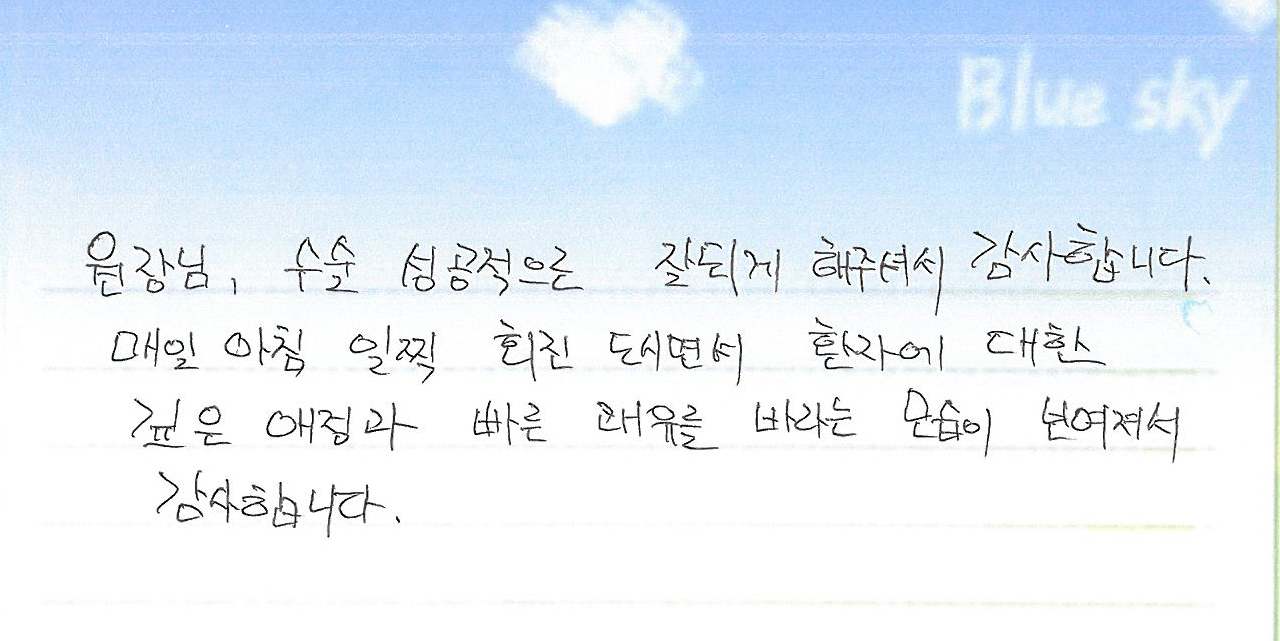 Blue sky
원장님, 수술 성공적으로 잘되게 해주셔서 감사합니다.
매일 아침 일찍 회진 도시면서 환자에 대한
깊은 애정과 빠른 쾌유를 바라는 모습이 보여져서
감사합니다.